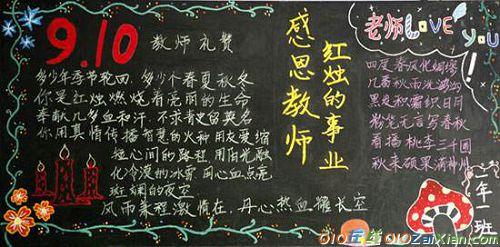 9.10
教师礼赞
多少年季节轮回,多少个春夏秋冬
你是红烛燃烧着亮丽的生命
奉献几多血和汗,不求青史留英名
你用真情传播智慧的火种 用友爱缩
短心间的路程 用阳光融
化冷漠的冰雪 用心血点亮
斑斓的夜空
风雨兼程激情在,丹心热血耀长空
感恩教师
红烛的事业
老师Love you!
四度春风化绸缪
几番秋雨洗鸿沟
黑发积霜织日月
粉笔无言写春秋
看播桃李三千圃
秋来硕果满神州
二年一班
OIO在线
OIOZaiXian.com